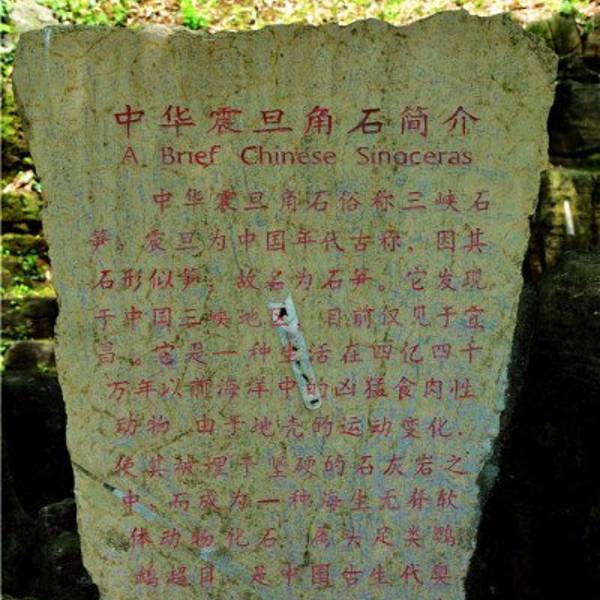 中华震旦角石简介
A Brief Chinese Sinoceras
中华震旦角石俗称三峡石
笋。震旦为中国年代古称,因其
石形似笋,故名为石笋。它发现
于中国三峡地区,目前仅见于宜
昌。它是一种生活在四亿四千
万年以前海洋中的凶猛食肉性
动物,由于地壳的运动变化,
使其被埋于坚硬的石灰岩之
中,而成为一种海生无脊软
体动物化石,属头足类鹦
鹉超目,是中国古生代奥